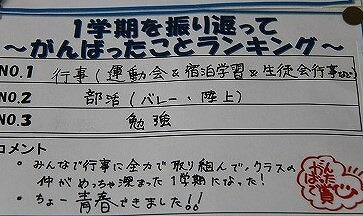 1学期を振り返って
～がんばったことランキング～
NO.1 行事(運動会&宿泊学習&生徒会行事など)
NO.2 部活(バレー・陸上)
NO.3 勉強
コメント
・みんなで行事に全力で取り組んで、クラスの
仲がめっちゃ深まった1学期になった!
・ちょー青春できました!!
がんばったで賞